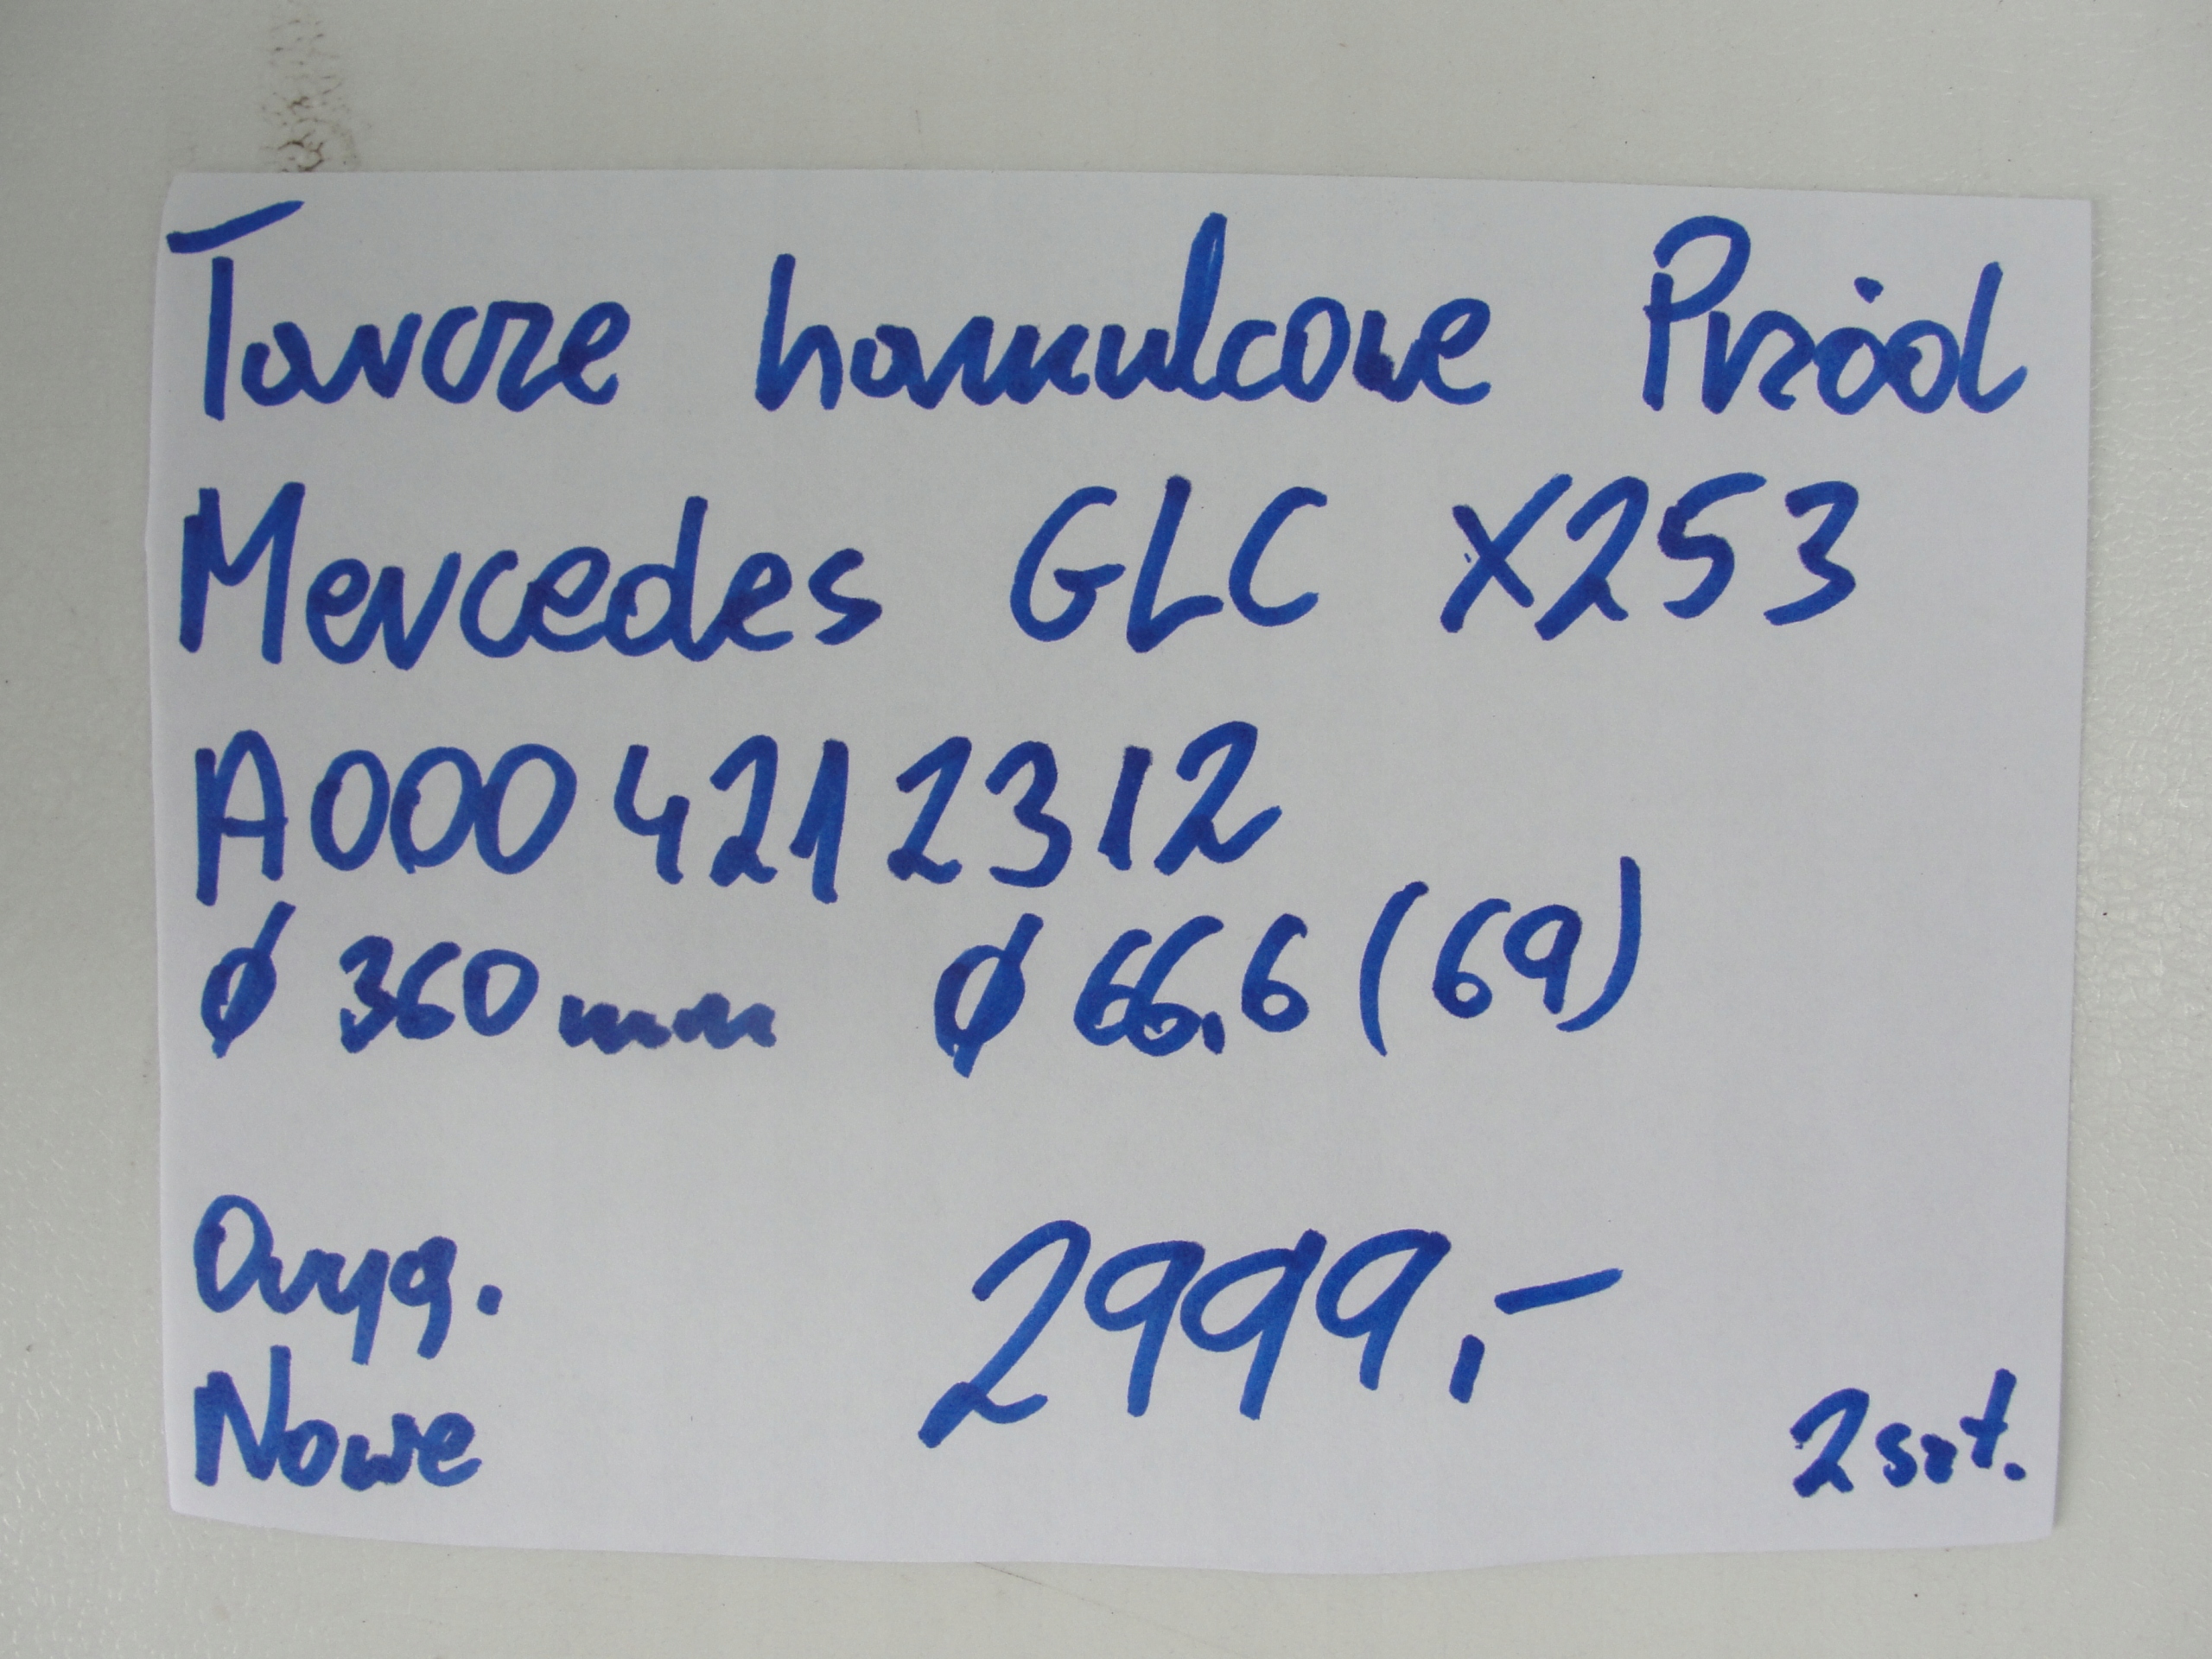 Tarcze hamulcowe Przód
Mercedes GLC X253
A000 421 2312
ø 360mm ø 66,6 (69)
Oryg. 2999,-
Nowe 2szt.